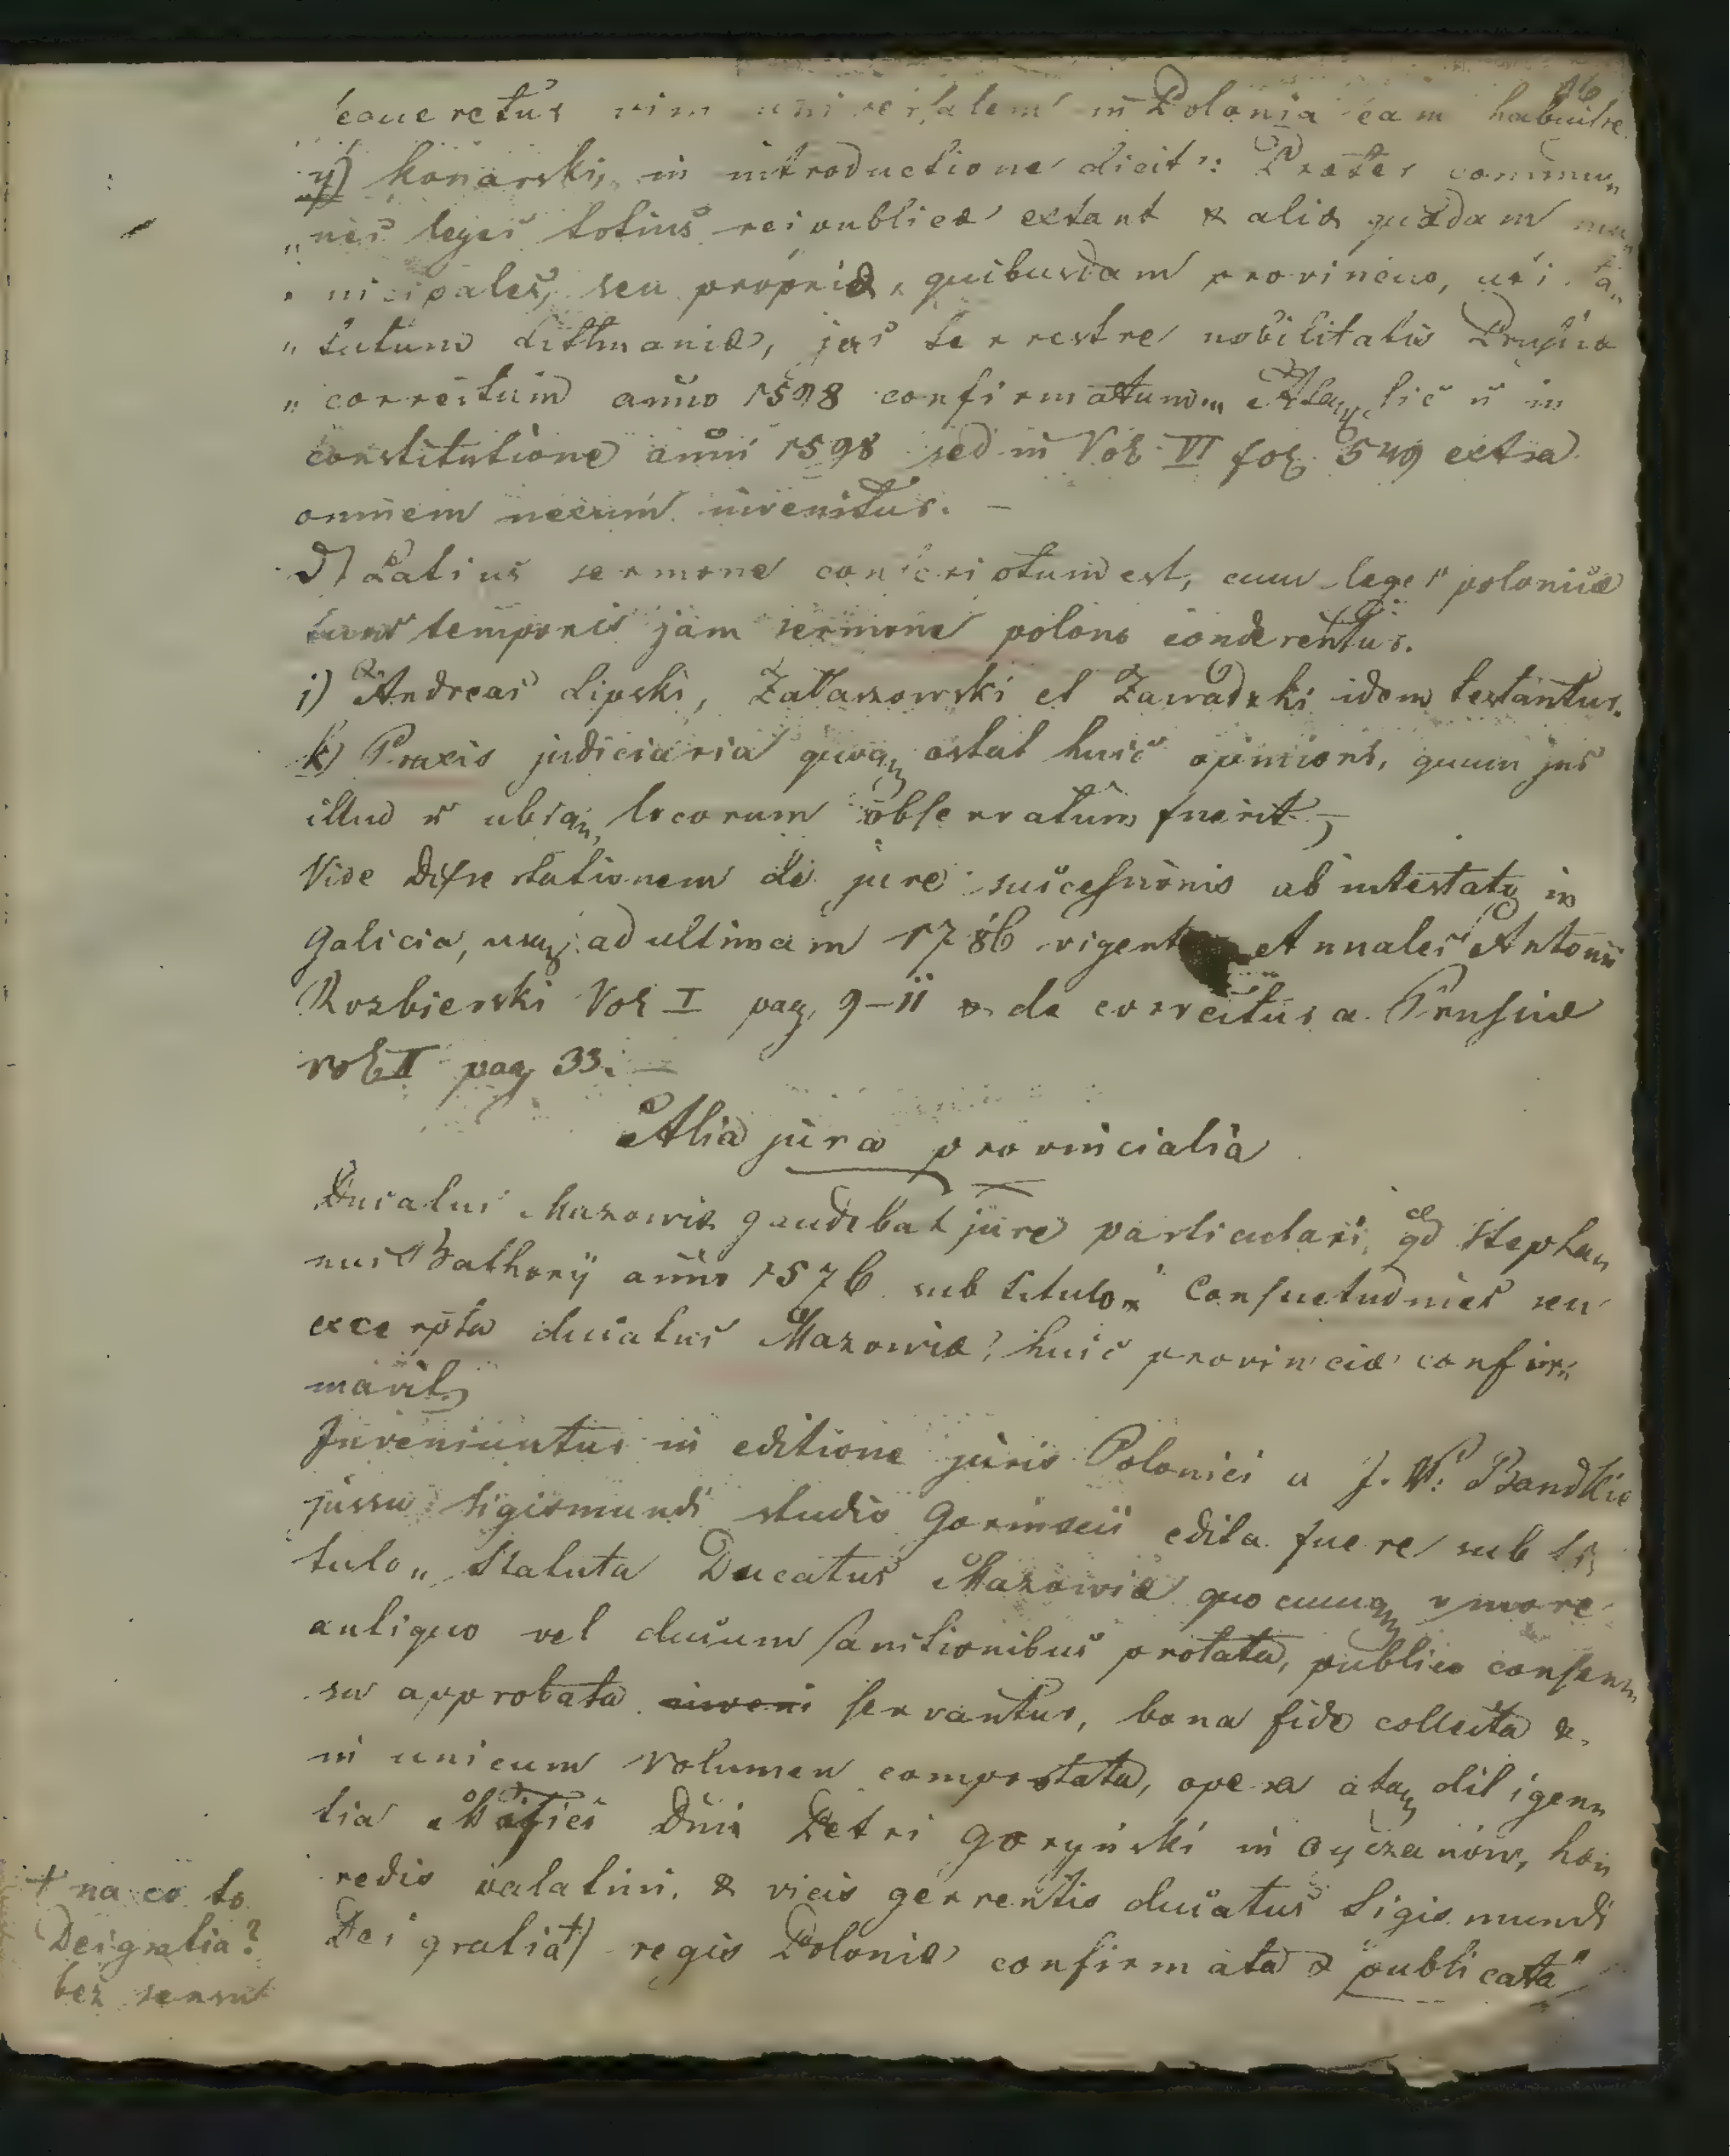 16
vim universalem in Polonia eam habuisse.
y) Konarski, in introductione dicit: Præter commu„
„nes leges totius reipublicæ extant & aliæ quædam mu„
„nicipales, seu propriæ, quibusdam provinciis, uti ta„
„tutum Lithvaniæ, jus terrestre nobilitatis Prussiæ
„correctum anno 1598 confirmatum„ Ataq, sic ñ in
constitutione anni 1598 sed in Vol. VI fol. 549 extra
omnem nexum invenitur. –
Latius sermone conscriptum est, cum leges poloniæ
temporis jam sermone polono conderentur.
i) Andreas Lipski, Załaszowski et Zawadzki idem testantur.
k) Praxis judiciaria quoq, ostat huic opinioni, quum jus
illud ñ ubiq, locorum observatum fuerit,
Vide Dissertationem de jure successionis ab intestato in
Galicia, usq, ad ultimam 1786 vigent Annales Antonii
Rozbierski Vol I pag. 9–11 & de correctura Prussiæ
vol II pag 33. –
Alia jura provincialia
Ducatus Mazowiæ gaudebat jure particulari, qd Stepha„
nus Bathory anno 1576 sub titulo: Consuetudines seu
excerpta ducatus Mazowiæ, huic provinciæ confir„
mavit,
Inveniuntur in editione juris Polonici a J. V. Bandkie
jussu Sigismundi studio Gorinscii edita fuere sub ti„
tulo „Statuta Ducatus Mazowiæ quocumq, more
antiquo vel ducum sanctionibus prolata, publico consen„
su approbata servantur, bona fide collecta &
in unicum volumen comportata, opera ataq, diligen„
tia Mgfici Dni Petri Goryński in Oyczanow, hæ„
redis palatini, & vicis gerrentis ducatus Sigismundi
Dei gratia†) regis Poloniæ confirmata & publicata"
† na co to
Dei gratia?
bez sensu